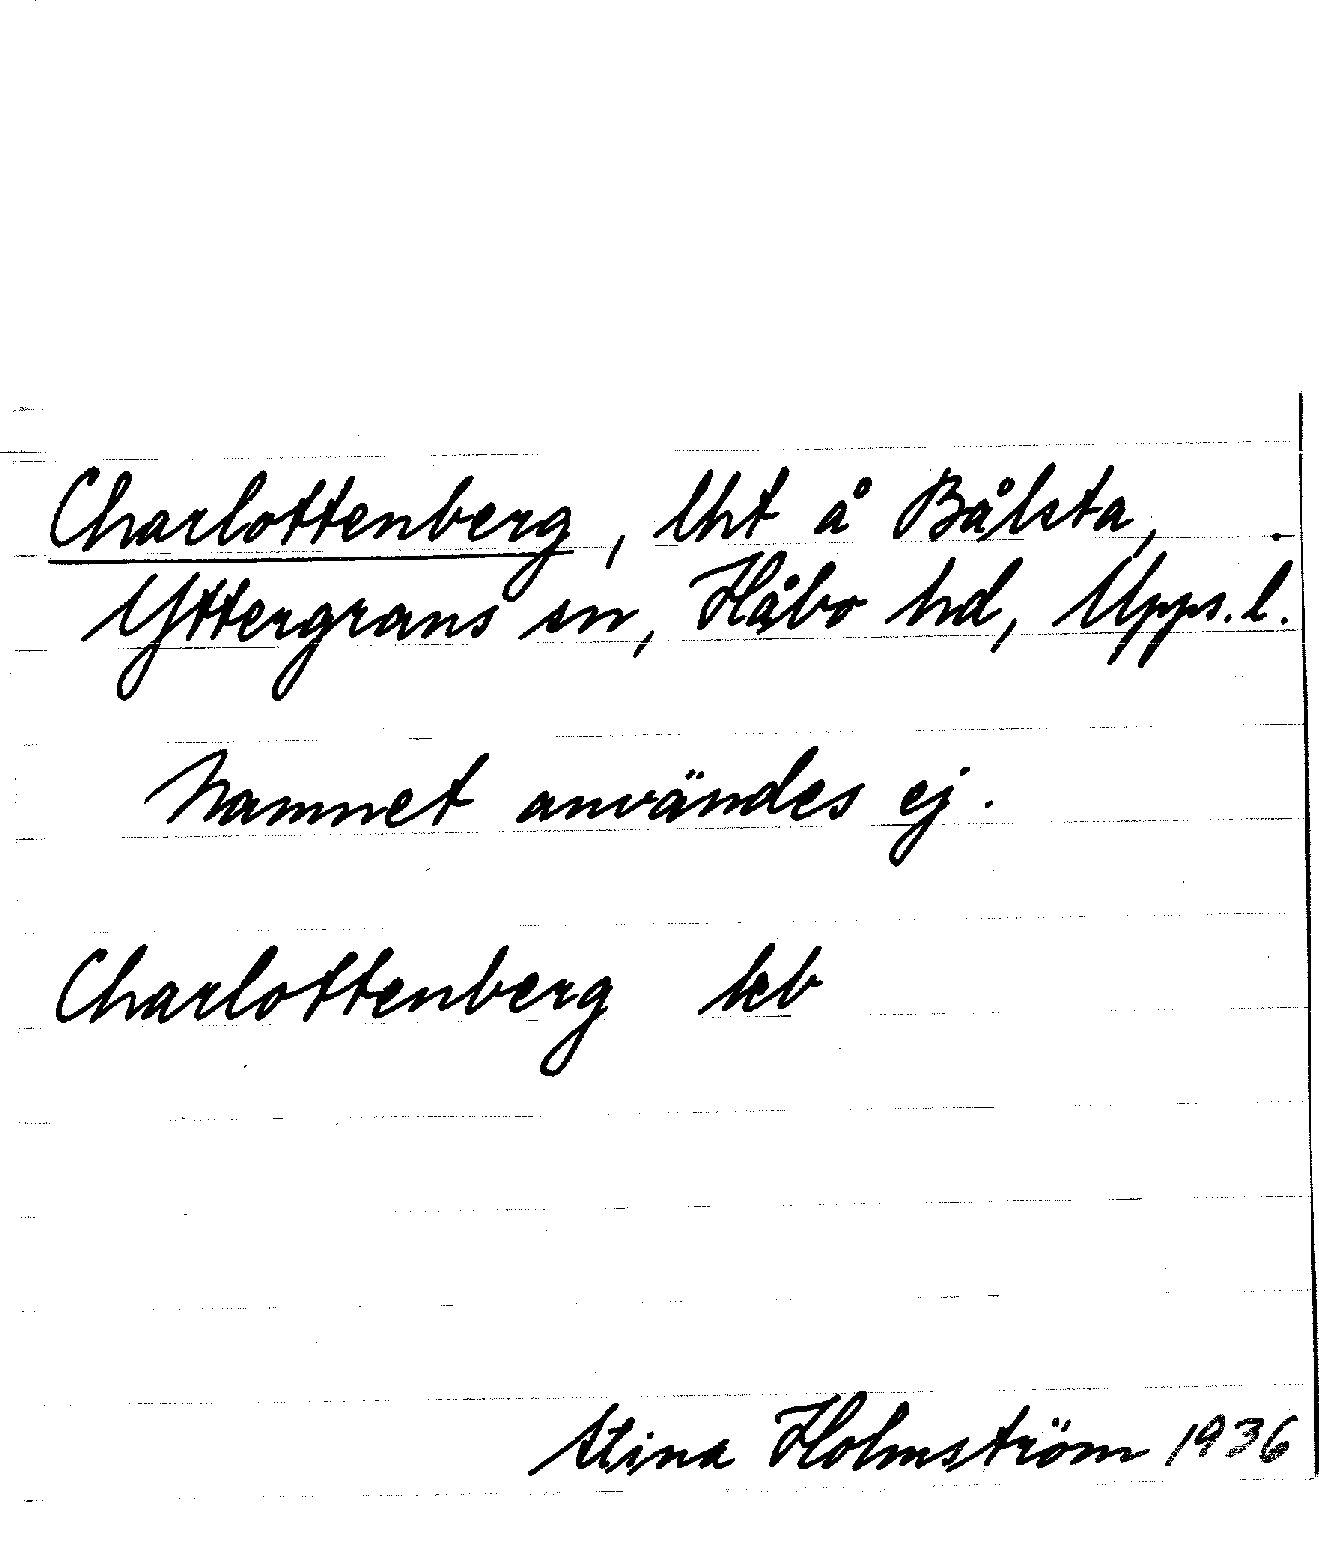 Charlottenberg, lht å Bålsta,
Yttergrans sn, Håbo hd, Upps. l.
Namnet användes ej.
Charlottenberg kb
Stina Holmström 1936